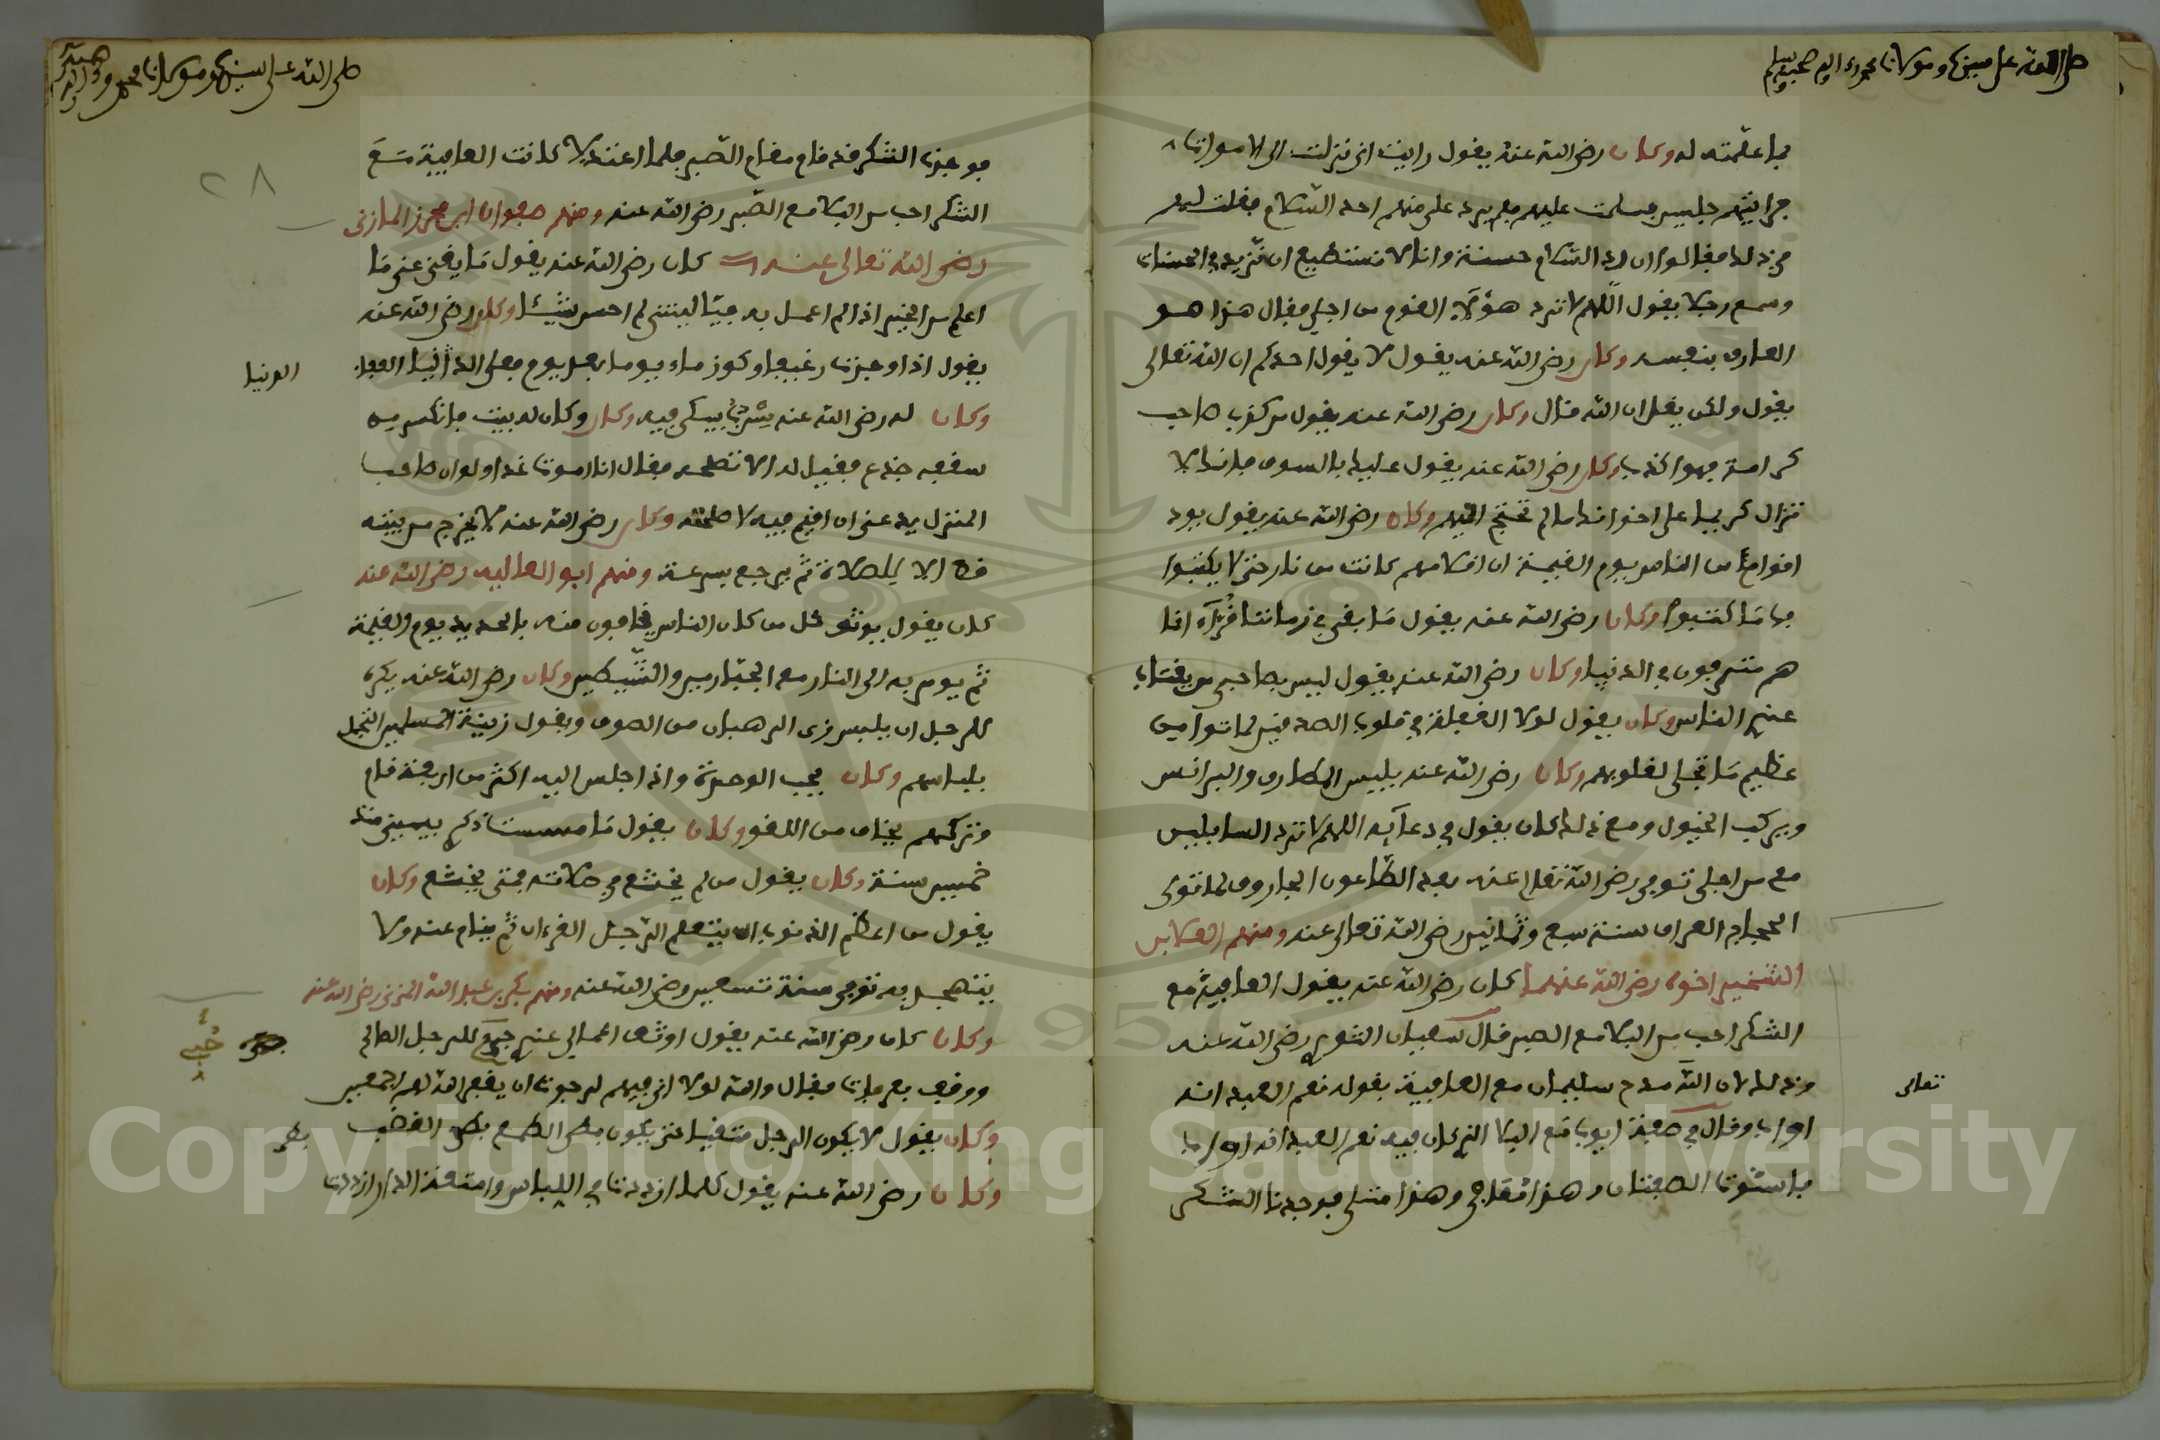 صلى الله على سيدنا ومولانا محمد واله وصحبه وسلم
بما علمته له وكان رضي الله عنه يقول رايت اني نزلت الى الاموات
فرايتهم جليس فسلمت عليهم فلم يرد علي منهم احد السلام فقلت لهم
في ذلك فقالوا ان رد السلام حسنة وانا لا نستطيع ان نزيد في الحسنات
وسمع رجلا يقول اللهم لا ترد هؤلاء القوم من اجلي فقال هذا هو
العارف بنفسه وكان رضي الله عنه يقول لا يقول احدكم ان الله تعالى
يقول ولكن يقل ان الله قال وكان رضي الله عنه يقول من كذب صاحب
كرامة فهو اكذب وكان رضي الله عنه يقول عليك بالسوق فانك لا
تزال كريما على اخوانك ما لم تحتج اليهم وكان رضي الله عنه يقول يود
اقوام من الناس يوم القيمة ان اقلامهم كانت من نار حتى لا يكتبوا
بها ما كتبوا وكان رضي الله عنه يقول ما بقي في زماننا قراء انما
هم مترفون في الدنيا وكان رضي الله عنه يقول ليس بصاحبي من يغتاب
عندي الناس وكان يقول لولا الغفلة في قلوب الصديقين لماتوا من
عظيم ما تجلى لقلوبهم وكان رضي الله عنه يلبس المطارف والبرانس
ويركب الخيول ومع ذلك كان يقول في دعائه اللهم لا ترد السايلين
مع من اجلي توفي رضي الله تعالى عنه بعد الطاعون الجاروف لما تولى
الحجاج العراق سنة سبع وثمانين رضي الله تعالى عنه ومنهم العلاء بن
الشخير اخوه رضي الله عنهما كان رضي الله عنه يقول العافية مع
الشكر احب من البلا مع الصبر قال سفيان الثوري رضي الله عنه
وذلك لان الله مدح سليمان مع العافية بقوله نعم العبد انه
تعالى
اواب وقال في صفة ايوب مع البلا الذي كان فيه نعم العبد انه اواب
فاستوت الصفتان وهذا معافى وهذا مبتلى فوجدنا الشكر
صلى الله على سيدنا ومولانا محمد واله وصحبه
٢٨
فوجدنا الشكر قد قام مقام الصبر فلما اعتدلا كانت العافية مع
الشكر احب من البلا مع الصبر رضي الله عنه ومنهم صفوان ابن محرز المازني
رضي الله تعالى عنه كان رضي الله عنه يقول ما يغني عني ما
اعلم من الخير اذا لم اعمل به فياليتني لم احسن شيئا وكان رضي الله عنه
يقول اذا وجدت رغيفا وكوز ماء يوما بعد يوم فعلى الدنيا العفا
الدنيا
وكان له رضي الله عنه سرب يبكي فيه وكان وكان له بيت فانكسر من
سقفه جذع فقيل له الا تصلحه فقال انا اموت غدا ولو ان صاحب
المنزل يدعني ان اقيم فيه لاصلحته وكان رضي الله عنه لا يخرج من بيته
قط الا للصلاة ثم يرجع بسرعة ومنهم ابو العالية رضي الله عنه
كان يقول يوتى بكل من كان الناس يخافون منه بالحديد يوم القيمة
ثم يومر به الى النار مع الجبارين والشيطين وكان رضي الله عنه يكره
للرجل ان يلبس زي الرهبان من الصوف ويقول زينة المسلمين التجمل
بلباسهم وكان يحب الوحدة واذا جلس اليه اكثر من اربعة قام
وتركهم يخاف من اللغو وكان يقول ما مسست ذكري بيميني منذ
خمسين سنة وكان يقول من لم يخشع في صلاته فمتى يخشع وكان
يقول من اعظم الذنوب ان يتعلم الرجل القرءان ثم ينام عنه ولا
يتهجد به توفي سنة تسعين رضي الله عنه ومنهم بكر بن عبد الله المزني رضي الله عنه
وكان كان رضي الله عنه يقول اوثق اعمالي عندي حبي للرجل الصالح
حبي
ووقف بعرفات فقال والله لولا اني فيهم لرجوت ان يغفر الله لهم اجمعين
وكان يقول لا يكون الرجل متقيا حتى يكون بطي الطمع بطي الغضب
بطي
وكان رضي الله عنه يقول كلما ازددت في اللباس وامتعة الدار ازددت